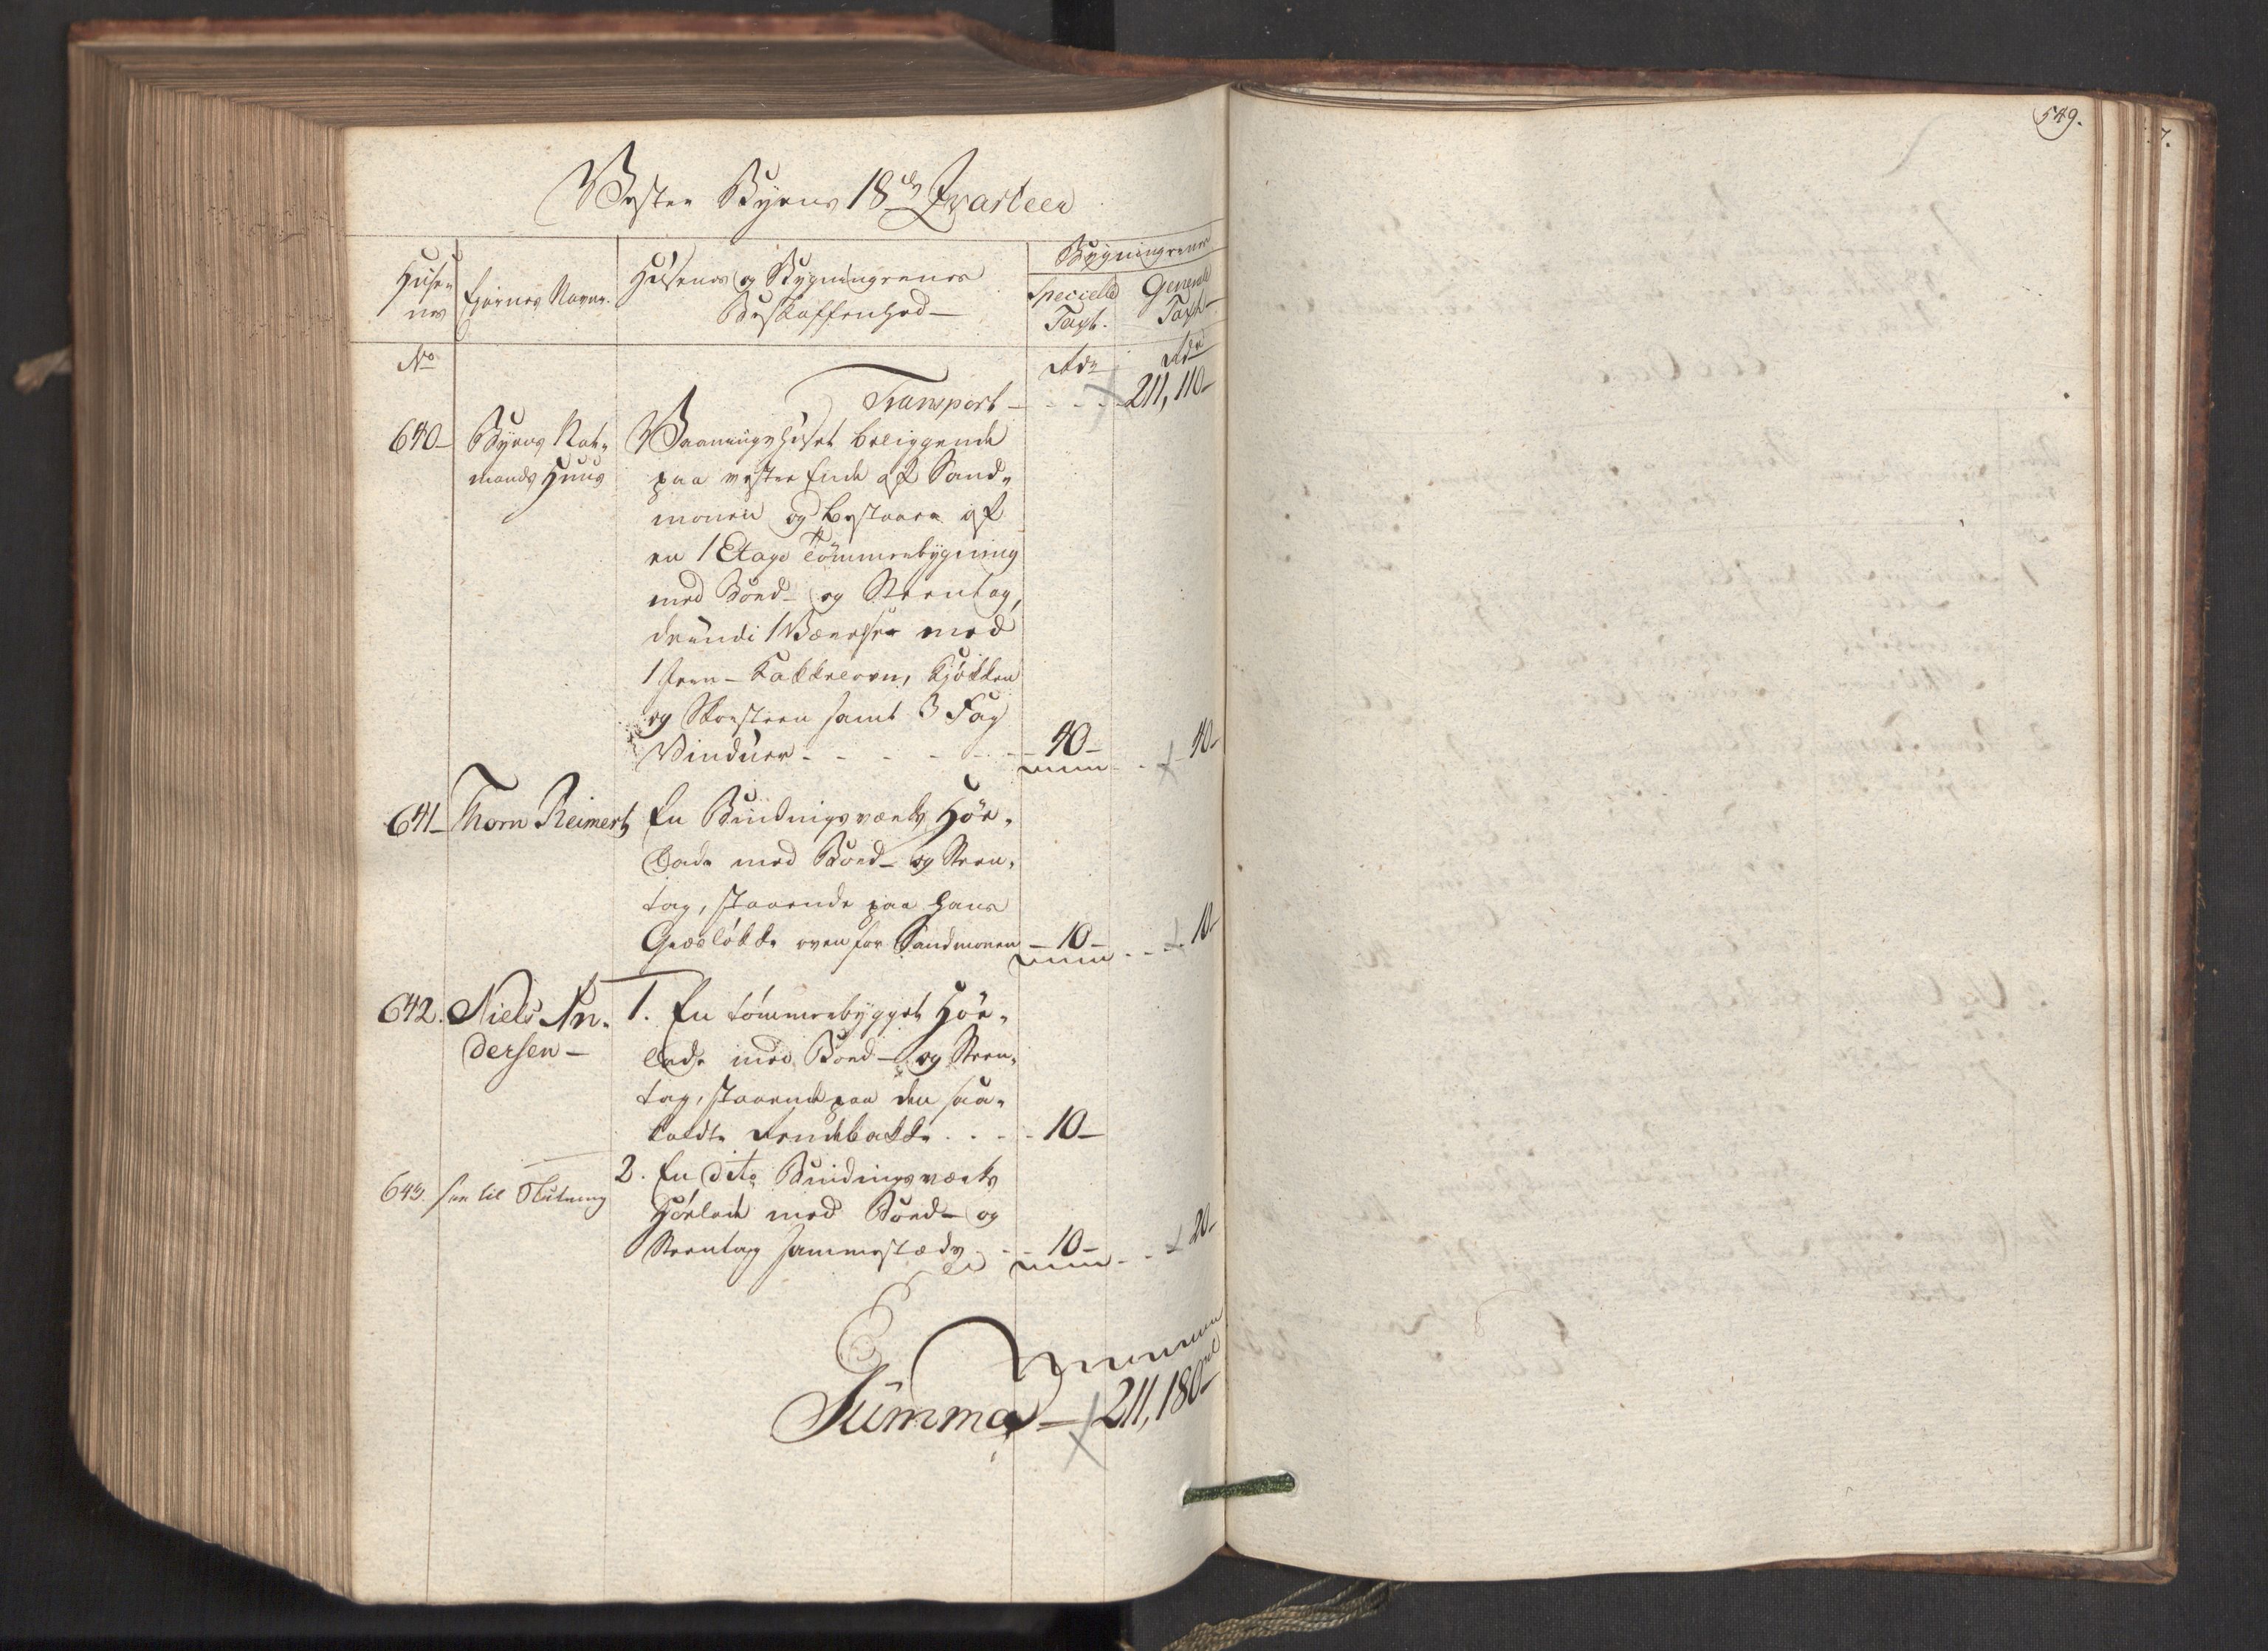 549.
7.
Vester Byens 18de Qvarteer
Husenes
Ejernes Navne.
Husenes og Bygningernes
Beskaffenhed
Bygningernes
Specielle Taxt.
Generale Taxt
No
Rdr
Rdr
Transport - 211,110-
640- Byens Nat-
mands Huus
Vaaningshuset beliggende
paa vester Ende af Sand-
moven og bestaaer af
en 1 Etage Tømmerbygning
med Bord- og Steentag,
derudi 1 Værelse med
1 Jern-Kakkelovn, Kjøkken
og Skorsteen samt 3 Fag
Vinduer - 40- 40-
641- Thom Reimert
En Bindingsværks Høe-
lade med Bord- og Steen-
tag, staaende paa hans
Grosløkke oven for Sandmoven - 10- 10-
642. Niels An-
dersen-
1. En tømmerbygget Høe-
lade med Bord- og Steen-
tag, staaende paa den saa-
kaldte Rendebakke - 10-
2. En dito Bindingsværks
Høelade med Bord- og
Steentag sammestæds - 10- 20-
643. see til Slutning
Summa - 211,180